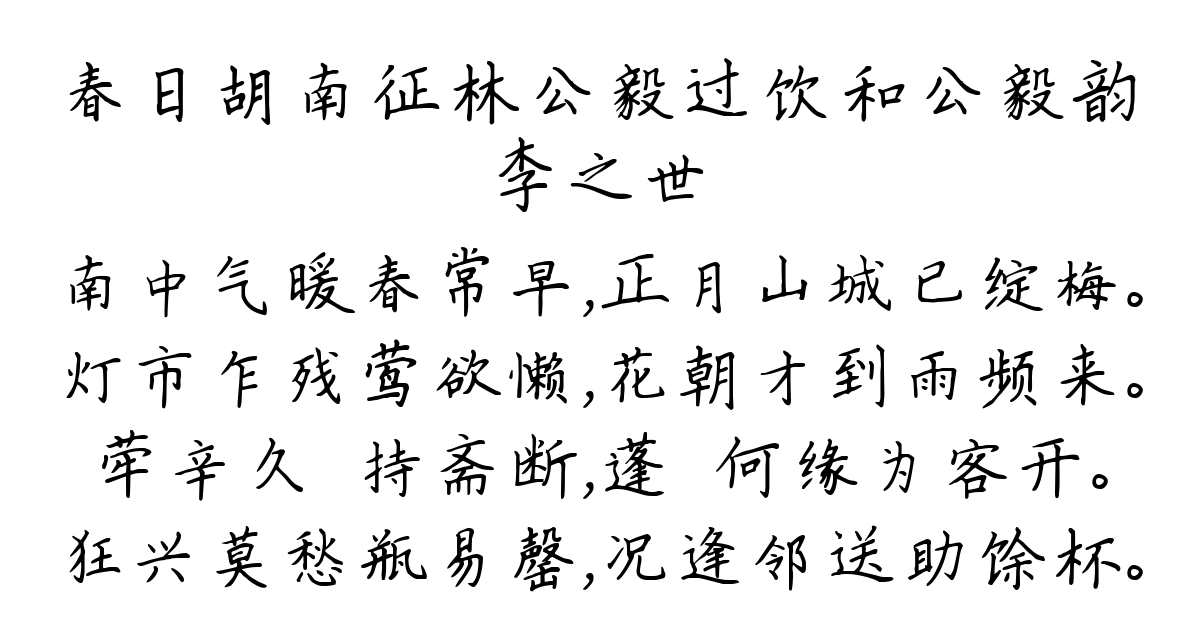 春日胡南征林公毅过饮和公毅韵
李之世
南中气暖春常早,正月山城已绽梅。
灯市乍残莺欲懒,花朝才到雨频来。
荤辛久 持斋断,蓬 何缘为客开。
狂兴莫愁瓶易罄,况逢邻送助馀杯。